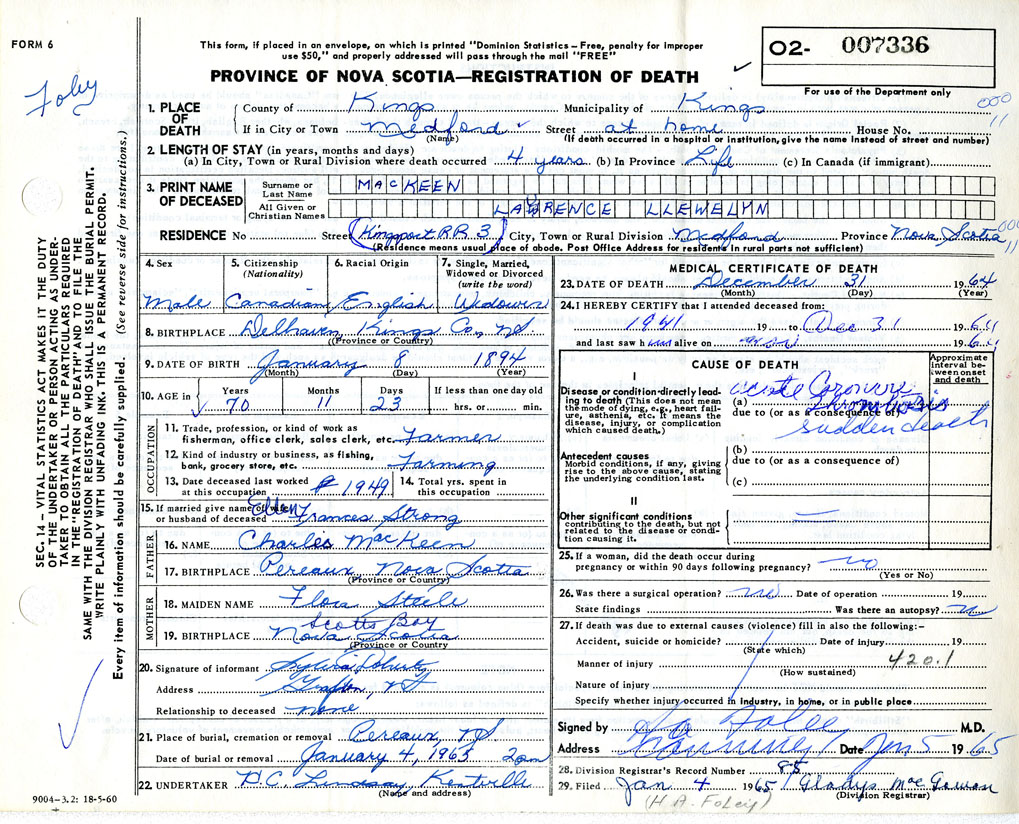 FORM 6
Foley
This form, if placed in an envelope, on which is printed "Dominion Statistics – Free, penalty for improper
use $50," and properly addressed will pass through the mail "FREE"
PROVINCE OF NOVA SCOTIA—REGISTRATION OF DEATH
O2- 007336
For use of the Department only
000
11
1. PLACE OF DEATH County of Kings Municipality of Kings
If in City or Town Medford Street at home House No.
(Name) (If death occurred in a hospital or institution, give the name instead of street and number)
2. LENGTH OF STAY (in years, months and days)
(a) In City, Town or Rural Division where death occurred 4 years (b) In Province Life (c) In Canada (if immigrant)
3. PRINT NAME OF DECEASED
Surname or Last Name MACKEEN
All Given or Christian Names LAWRENCE LLEWELYN
RESIDENCE No Street Kingsport RR 3 City, Town or Rural Division Medford Province Nova Scotia
(Residence means usual place of abode. Post Office Address for residents in rural parts not sufficient)
000
11
4. Sex
Male
5. Citizenship (Nationality)
Canadian
6. Racial Origin
English
7. Single, Married, Widowed or Divorced (write the word)
Widower
8. BIRTHPLACE Delhaven, Kings Co, NS
(Province or Country)
9. DATE OF BIRTH January 8 1894
(Month) (Day) (Year)
10. AGE in Years 70 Months 11 Days 23 If less than one day old hrs. or min.
OCCUPATION
11. Trade, profession, or kind of work as fisherman, office clerk, sales clerk, etc. Farmer
12. Kind of industry or business, as fishing, bank, grocery store, etc. Farming
13. Date deceased last worked at this occupation 1949 14. Total yrs. spent in this occupation
15. If married give name of wife or husband of deceased Ellen Frances Strong
FATHER
16. NAME Charles MacKeen
17. BIRTHPLACE Pereaux Nova Scotia
(Province or Country)
MOTHER
18. MAIDEN NAME Flora Steele
19. BIRTHPLACE Scotts Bay Nova Scotia
(Province or Country
20. Signature of informant
Address Grafton, NS
Relationship to deceased none
21. Place of burial, cremation or removal Pereaux, NS
Date of burial or removal January 4, 1965 2 pm
22. UNDERTAKER H.C. Lindsay, Kentville
(Name and address)
MEDICAL CERTIFICATE OF DEATH
23. DATE OF DEATH December 31 1964
(Month) (Day) (Year)
24. I HEREBY CERTIFY that I attended deceased from:
1941 19 to Dec 31 1964
and last saw h im alive on 1964
CAUSE OF DEATH
Approximate interval between onset and death
I
Disease or condition directly leading to death (This does not mean the mode of dying, e.g., heart failure, asthenia, etc. It means the disease, injury, or complication which caused death.)
(a) acute Coronary Thrombosis
due to (or as a consequence of)
sudden death
Antecedent causes
Morbid conditions, if any, giving rise to the above cause, stating the underlying condition last.
(b)
due to (or as a consequence of)
(c)
II
Other significant conditions
contributing to the death, but not related to the disease or condition causing it.
25. If a woman, did the death occur during pregnancy or within 90 days following pregnancy? no
(Yes or No)
26. Was there a surgical operation? no Date of operation 19
State findings Was there an autopsy? no
27. If death was due to external causes (violence) fill in also the following:–
Accident, suicide or homicide? Date of injury 19
(State which)
Manner of injury 420.1
(How sustained)
Nature of injury
Specify whether injury occurred in industry, in home, or in public place
Signed by M.D.
Address Canning Date Jan 5 1965
28. Division Registrar's Record Number 85
29. Filed Jan 4 1965 Gladys MacGowan
(Division Registrar)
(H A FoLey)
SEC. 14 – VITAL STATISTICS ACT MAKES IT THE DUTY
OF THE UNDERTAKER OR PERSON ACTING AS UNDER-
TAKER TO OBTAIN ALL THE PARTICULARS REQUIRED
IN THE "REGISTRATION OF DEATH" AND TO FILE THE
SAME WITH THE DIVISION REGISTRAR WHO SHALL ISSUE THE BURIAL PERMIT.
WRITE PLAINLY WITH UNFADING INK. THIS IS A PERMANENT RECORD.
Every item of information should be carefully supplied. (See reverse side for instructions.)
9004–3.2: 18-5-60